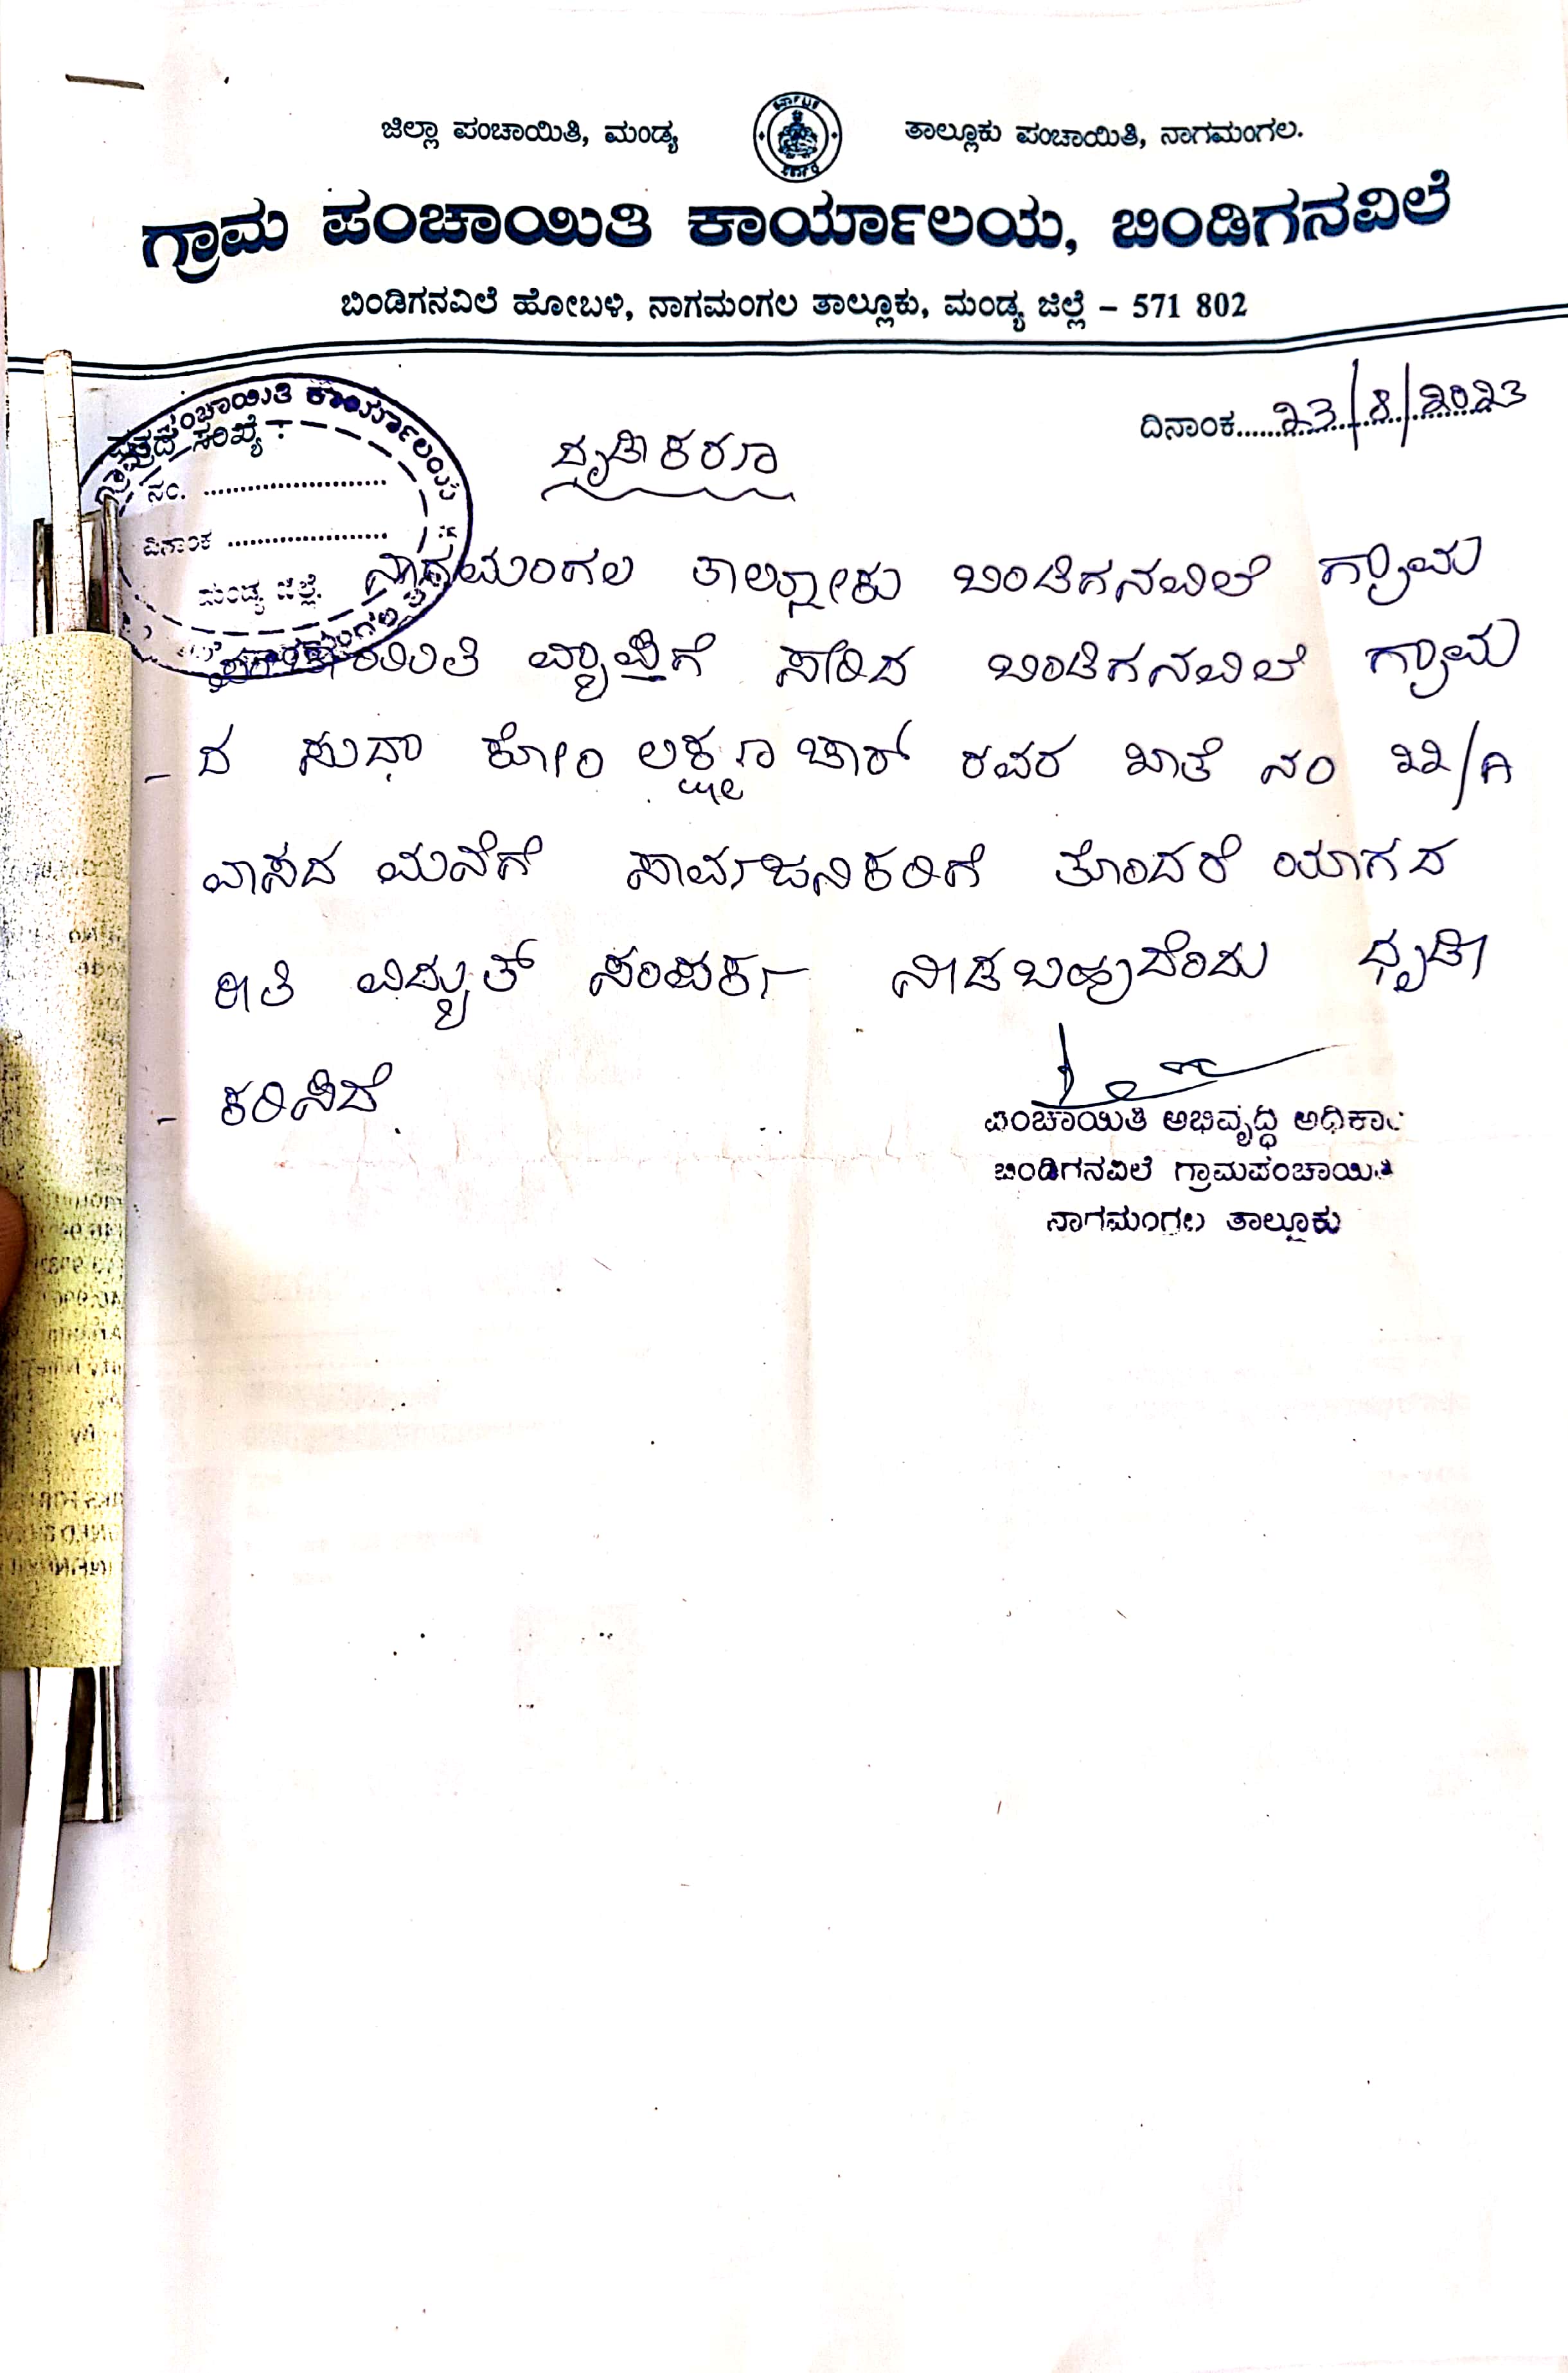 ಜಿಲ್ಲಾ ಪಂಚಾಯಿತಿ, ಮಂಡ್ಯ ತಾಲ್ಲೂಕು ಪಂಚಾಯಿತಿ, ನಾಗಮಂಗಲ.
ಗ್ರಾಮ ಪಂಚಾಯಿತಿ ಕಾರ್ಯಾಲಯ, ಬಿಂಡಿಗನವಿಲೆ
ಬಿಂಡಿಗನವಿಲೆ ಹೋಬಳಿ, ನಾಗಮಂಗಲ ತಾಲ್ಲೂಕು, ಮಂಡ್ಯ ಜಿಲ್ಲೆ – 571 802
ಪತ್ರದ ಸಂಖ್ಯೆ :
ದಿನಾಂಕ 23/8/2023
ನಂ.
ದೃಡೀಕರಣ
ದಿನಾಂಕ
ಮಂಡ್ಯ ಜಿಲ್ಲೆ.
ನಾಗಮಂಗಲ ತಾಲ್ಲೋಕು ಬಿಂಡಿಗನವಿಲೆ ಗ್ರಾಮ
ವ್ಯಾಪ್ತಿಗೆ ಸೇರಿದ ಬಿಂಡಿಗನವಿಲೆ ಗ್ರಾಮ
ದ ಸುಧಾ ಕೋಂ ಲಕ್ಷ್ಮಣಾಚಾರ್ ರವರ ಖಾತೆ ನಂ 22/A
ವಾಸದ ಮನೆಗೆ ಸಾರ್ವಜನಿಕರಿಗೆ ತೊಂದರೆ ಯಾಗದ
ರೀತಿ ವಿದ್ಯುತ್ ಸಂಪರ್ಕ ನೀಡಬಹುದೆಂದು ಧೃಡೀ
- ಕರಿಸಿದೆ
ಪಂಚಾಯಿತಿ ಅಭಿವೃದ್ಧಿ ಅಧಿಕಾರಿ
ಬಿಂಡಿಗನವಿಲೆ ಗ್ರಾಮಪಂಚಾಯಿತಿ
ನಾಗಮಂಗಲ ತಾಲ್ಲೂಕು